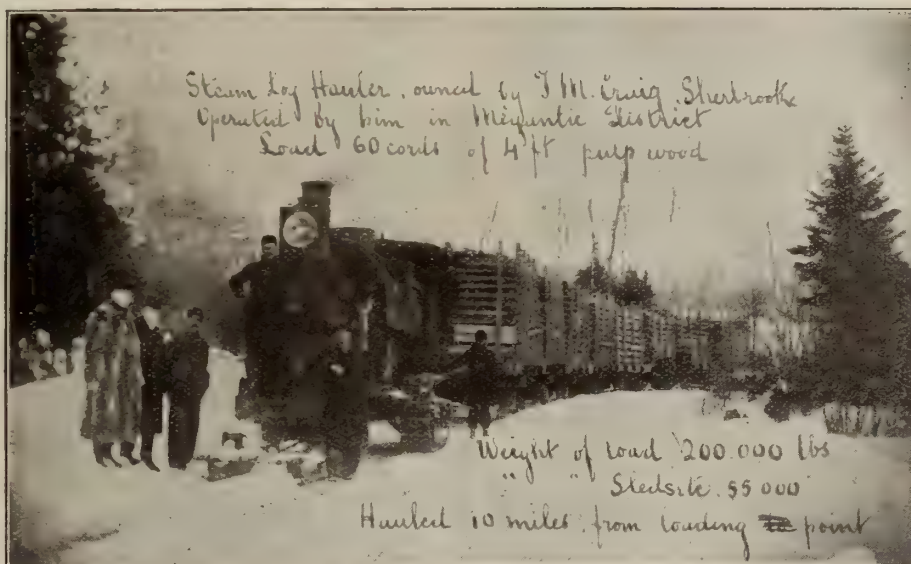 Steam Log Hauler. owned by J M. Craig. Sherbrooke
Operated by him in Megantic District
Load 60 cords of 4 ft pulp wood
Weight of load 200.000 lbs
" " Sleds etc. 55 000
Hauled 10 miles. from loading point